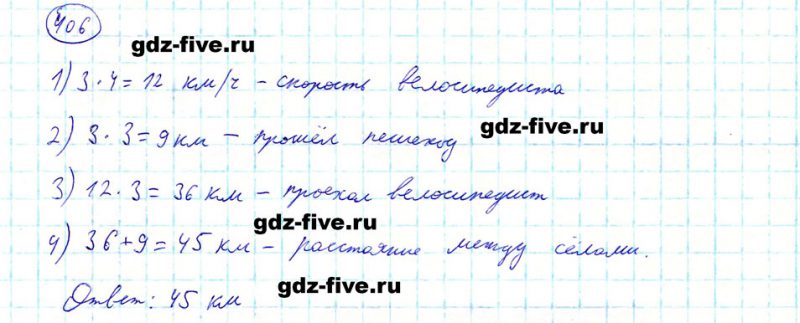 406
gdz-five.ru
1) 3·4=12 км/ч – скорость велосипедиста
2) 3·3=9 км – прошёл пешеход
gdz-five.ru
3) 12·3=36 км – проехал велосипедист
gdz-five.ru
4) 36+9=45 км – расстояние между сёлами.
Ответ: 45 км
gdz-five.ru